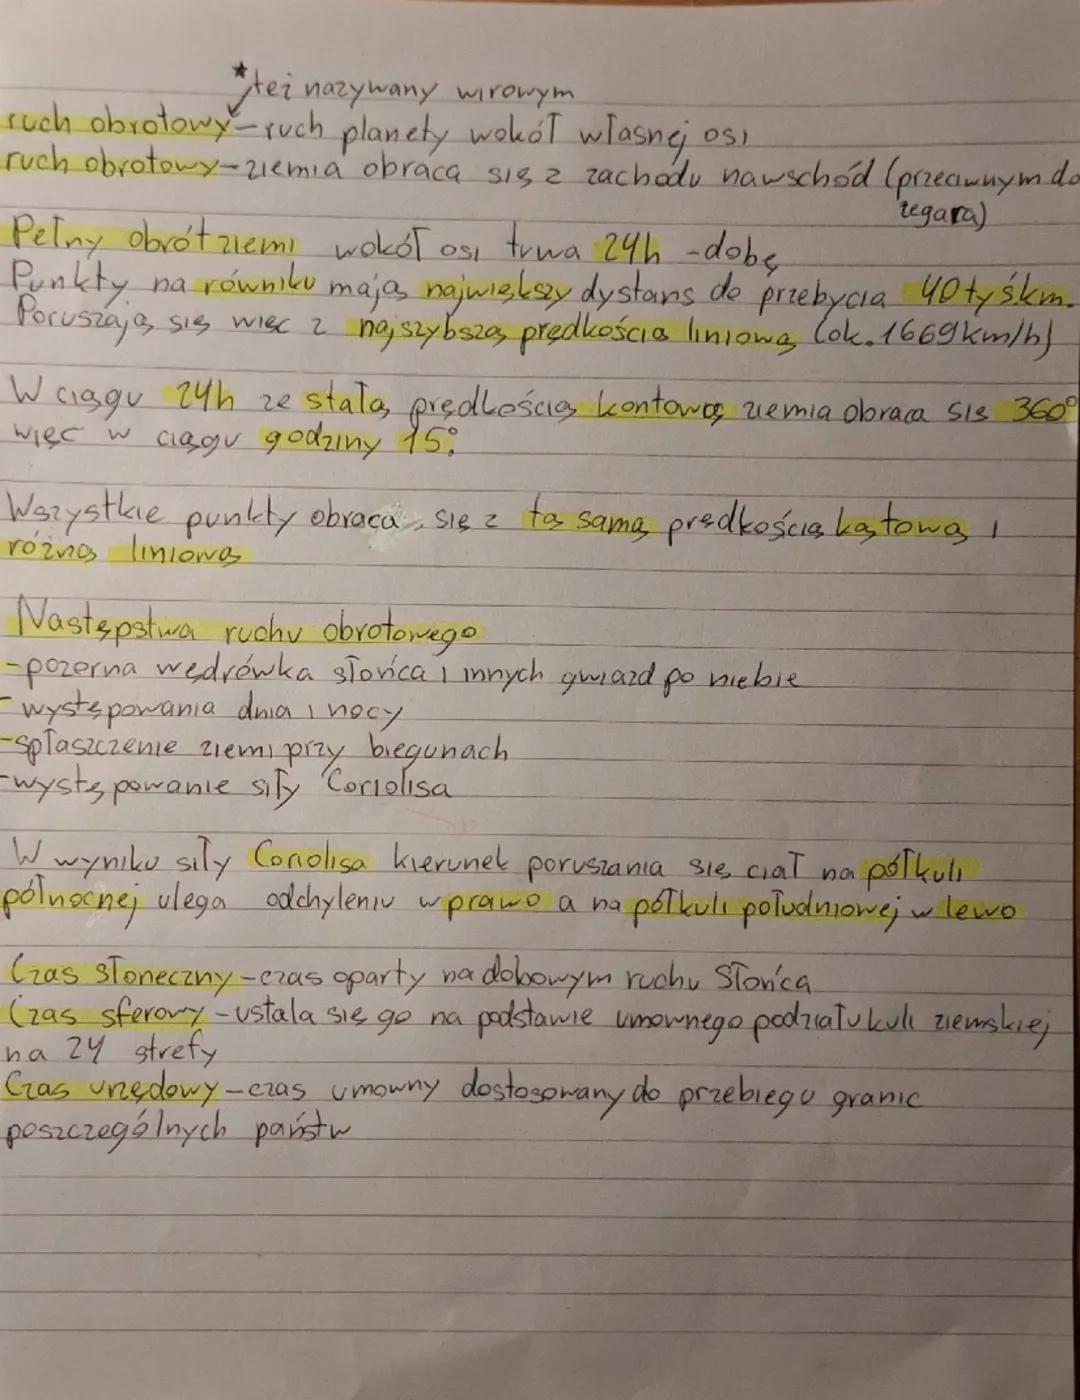 *też nazywany wirowym
ruch obrotowy-ruch planety wokół własnej osi
ruch obrotowy-ziemia obraca się z zachodu nawschód (przeciwnym do
zegara)
Pełny obrót ziemi wokół osi trwa 24h -dobę
Punkty na równiku mają największy dystans do przebycia 40tyśkm.
Poruszają się więc z najszybszą prędkością liniową (ok. 1669km/h)
W ciągu 24h ze stałą prędkością kontową ziemia obraca się 360°
więc w ciągu godziny 15°
Wszystkie punkty obraca się z tą samą prędkością kątową i
różną liniową
Następstwa ruchu obrotowego
-pozorna wędrówka słońca i innych gwiazd po niebie
-występowania dnia i nocy
-spłaszczenie ziemi przy biegunach
-występowanie siły Coriolisa
W wyniku siły Coriolisa kierunek poruszania się ciał na półkuli
północnej ulega odchyleniu w prawo a na półkuli południowej w lewo
Czas słoneczny-czas oparty na dobowym ruchu Słońca
Czas sferowy-ustala się go na podstawie umownego podziału kuli ziemskiej
na 24 strefy
Czas urzędowy-czas umowny dostosowany do przebiegu granic
poszczególnych państw